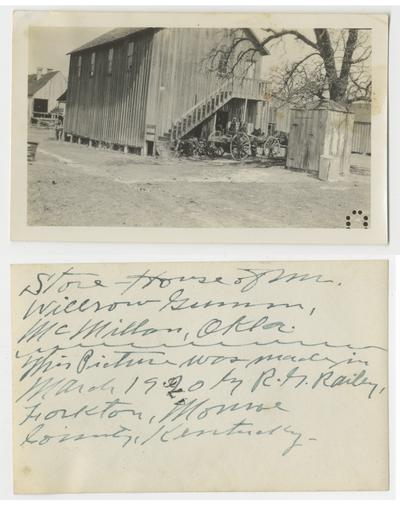 Store House of Mr.
Willrow Gumm,
McMillan, Okla.
This Picture was made in
March 1920 by R. G. Railey,
Forkton, Monroe
County, Kentucky.